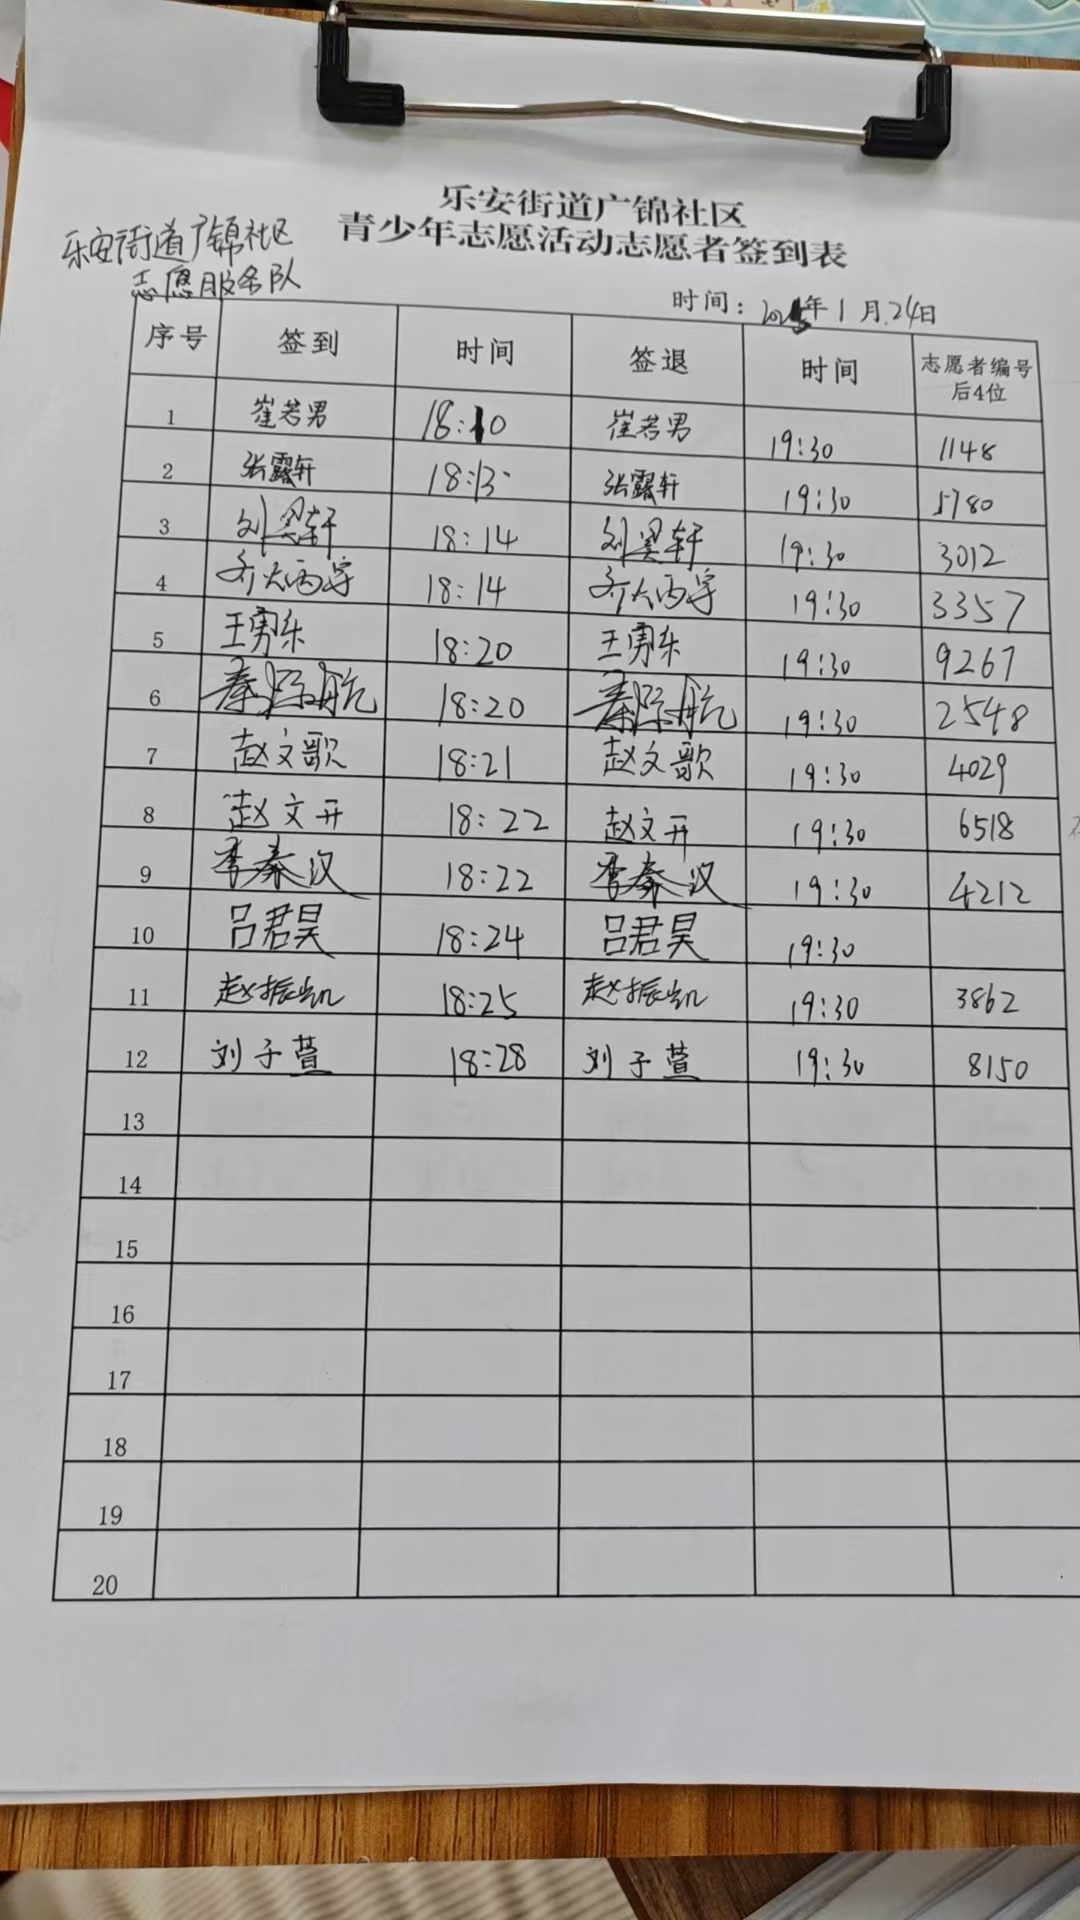 乐安街道广锦社区
青少年志愿活动志愿者签到表
乐安街道广锦社区
志愿服务队
时间：2025年1月24日
序号 签到 时间 签退 时间 志愿者编号后4位
1 崔若男 18:10 崔若男 19:30 1148
2 张露轩 18:13 张露轩 19:30 5780
3 刘昊轩 18:14 刘昊轩 19:30 3012
4 18:14 19:30 3357
5 王勇乐 18:20 王勇乐 19:30 9267
6 秦 航 18:20 秦 航 19:30 2548
7 赵文歌 18:21 赵文歌 19:30 4029
8 赵文开 18:22 赵文开 19:30 6518
9 李秦汉 18:22 李秦汉 19:30 4212
10 吕君昊 18:24 吕君昊 19:30
11 赵振凯 18:25 赵振凯 19:30 3862
12 刘子萱 18:28 刘子萱 19:30 8150
13
14
15
16
17
18
19
20